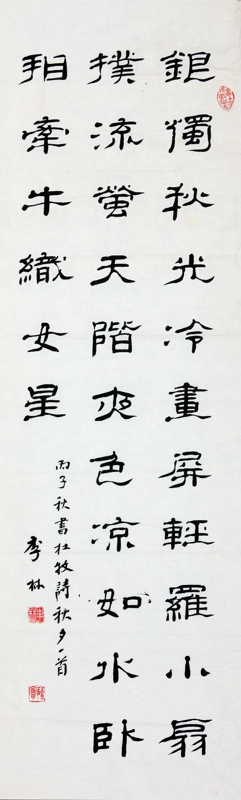 銀燭秋光冷畫屏輕羅小扇
撲流螢天階夜色凉如水臥
看牽牛織女星
丙子秋書杜牧詩秋夕一首
季林